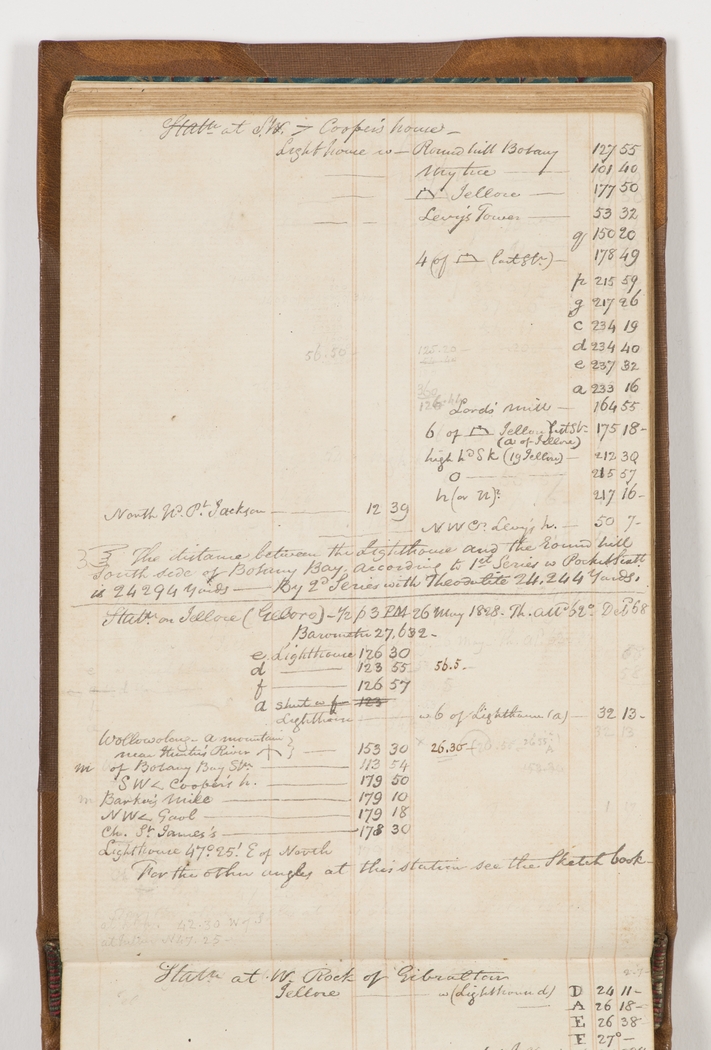 Statn at S.W. > Cooper's house —
Lighthouse w — Round hill Botany 127 55
Mytice 101 40
Jellore — 177 50
Levy's Tower — 53 32
q 150 20
4 (of last Stn) — 178 49
p 215 59
g 217 26
c 234 19
56.50 125.20 d 234 40
e 237 32
a 233 16
Lords' Mill — 164 55
6 of Jellore last Stn 175 18 -
(a of Jellore)
high hd Sk (19 Jellore) — 212 30
O — 215 57
h (or n)? 217 16 -
North Hd Pt Jackson — 12 39
N W Cr Levy's h. — 50 7 -
3 The distance between the Lighthouse and the Round hill
South side of Botany Bay. According to 1st Series w Pocket Sextt
is 24294 Yards — By 2d Series with Theodolite 24,244 Yards.
Statn on Jellore (Geboro) — 1/2 p 3 PM 26 May 1828 - Th. attd 62° Detd 68
Barometer 27,632 -
e Lighthouse 126 30
d — 123 55 56.5 -
f — 126 57
a shut w f — 123
Lighthouse — w 6 of Lighthouse (a) — 32 13 -
Wollowolong a mountain
near Hunter's River } — 153 30 26.30
m of Botany Bay Stn — 113 54
S W < Cooper's h. — 179 50
m Barker's Mill — 179 10
N W < Gaol — 179 18
Ch. St James's — 178 30
Lighthouse 47° 25' E of North
For the other angles at this station see the Sketch book —
42.30 W of S
N 47. 25 -
Statn at W. Rock of Gibraltar
Jellore — w (Lighthouse d) D 24 11 -
A 26 18 -
E 26 38 -
E 27° —